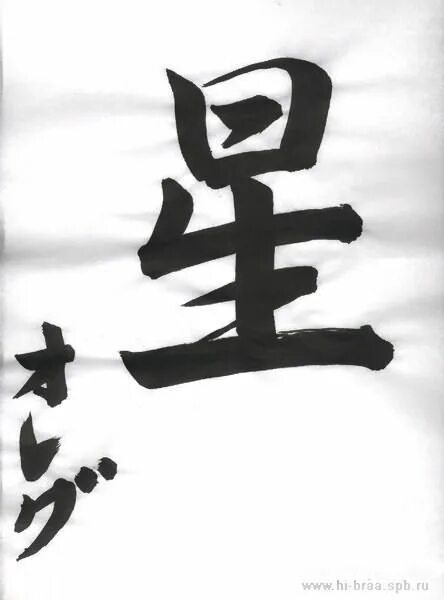 星
オレグ
www.hi-braa.spb.ru